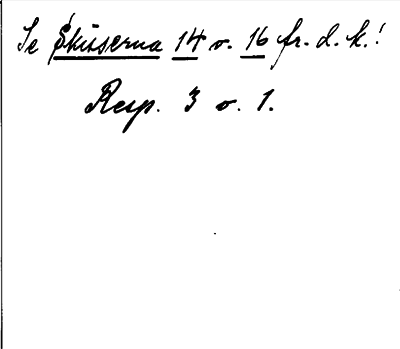 Se Skisserna 14 o. 16 fr. d. k.!
Resp. 3 o. 1.